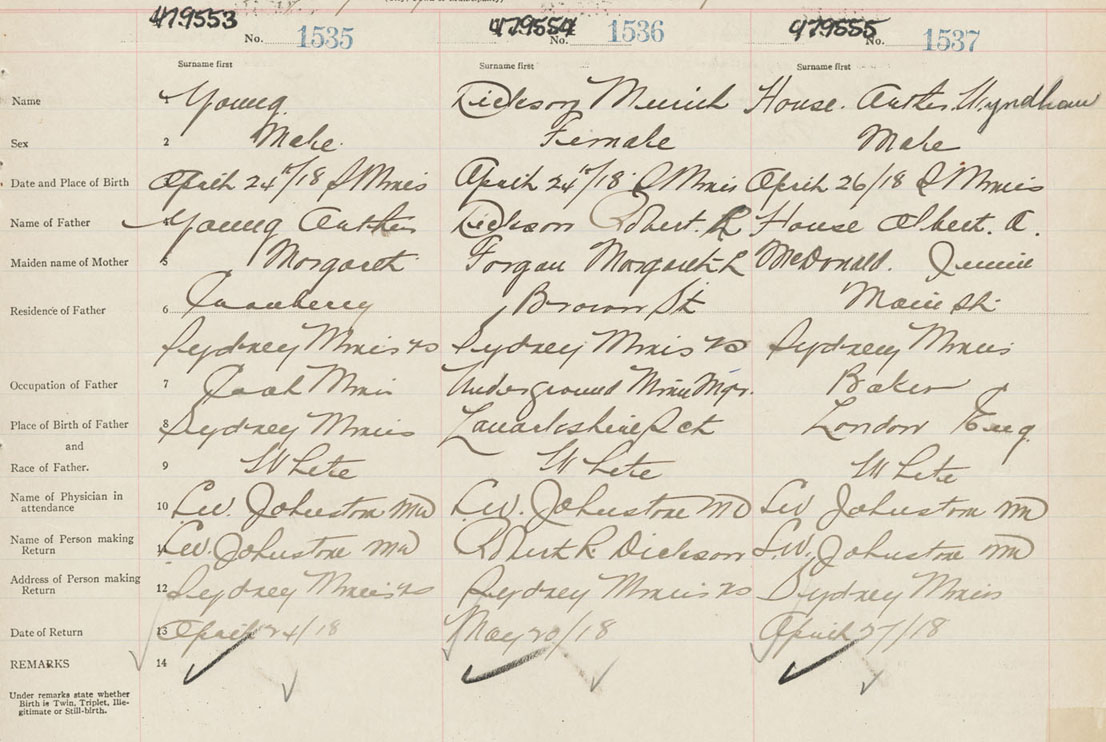 479553 479554 479555
No. 1535 No. 1536 No. 1537
Surname first Surname first Surname first
Name 1 Young Dickson House. Arthur Wyndham
Sex 2 Male. Female Male
Date and Place of Birth April 24th/18 S Mines April 24th/18 S Mines April 26/18 S Mines
Name of Father 4 Young Arthur Dickson Robert. R House Albert. A.
Maiden name of Mother 5 Margaret Forgan Margaret L McDonald. Jennie
Residence of Father 6 Cranberry Brown St Main St
Sydney Mines NS Sydney Mines NS Sydney Mines
Occupation of Father 7 Coal Miner Underground Mine Mgr. Baker
Place of Birth of Father 8 Sydney Mines Lanarkshire Sct London Eng
and
Race of Father. 9 White White White
Name of Physician in
attendance 10 LW. Johnstone MD LW. Johnstone MD LW Johnstone MD
Name of Person making
Return 11 LW. Johnstone MD Robert R Dickson LW. Johnstone MD
Address of Person making
Return 12 Sydney Mines NS Sydney Mines NS Sydney Mines
Date of Return 13 April 24/18 May 20/18 April 27/18
REMARKS 14
Under remarks state whether
Birth is Twin, Triplet, Ille-
gitimate or Still-birth.